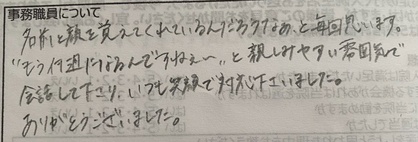 事務職員について
名前と顔を覚えてくれているんだろうなあ、と毎回思います。
"もう何週になるんですねぇ〜"と親しみやすい雰囲気で
会話して下さり、いつも笑顔で対応下さいました。
ありがとうございました。